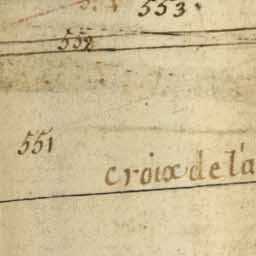 553.
552
551
croix de la